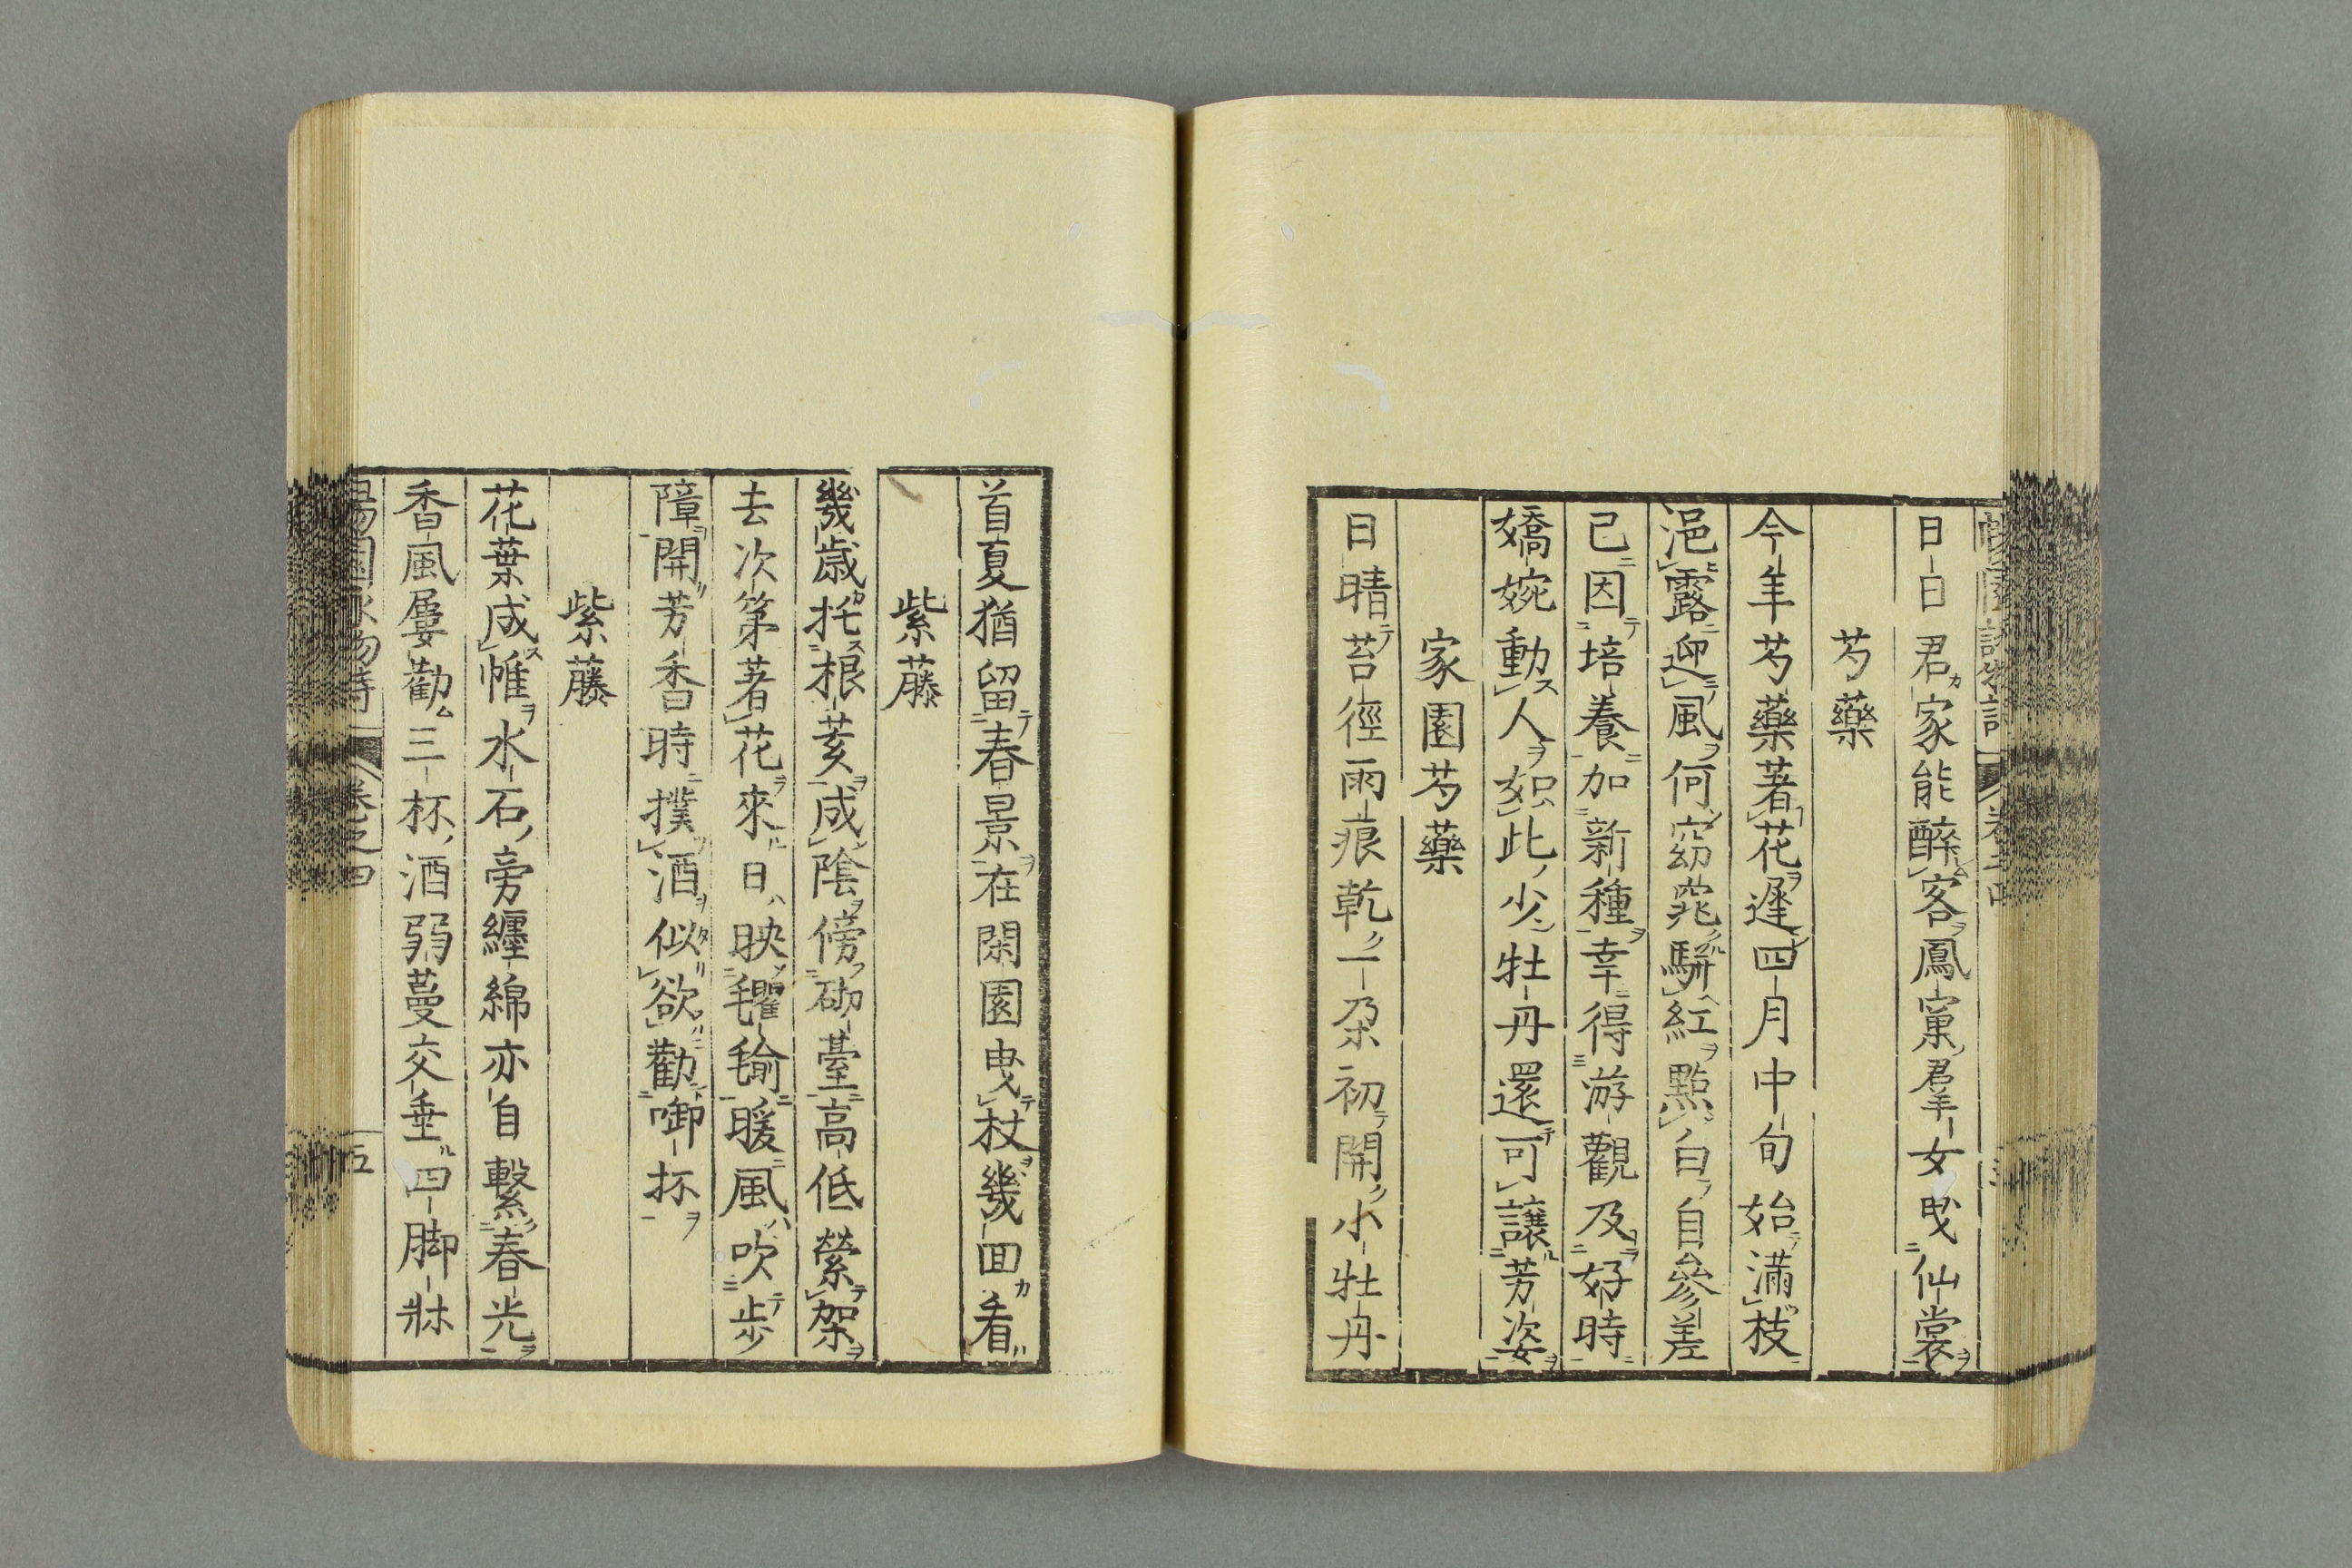 日日君家能醉客鳳窠羣女曳仙裳
芍藥
今年芍藥著花遲四月中旬始滿枝
浥露迎風何窈窕駢紅點白自參差
已因培養加新種幸得游觀及好時
嬌婉動人如此少牡丹還可讓芳姿
家園芍藥
日晴苔徑雨痕乾一朶初開小牡丹
首夏猶留春景在閑園曳杖幾回看
紫藤
幾歳托根荄成陰傍砌臺高低縈架
去次第著花來日映氍毹暖風吹步
障開芳香時撲酒似欲勸啣杯
紫藤
花葉成帷水石旁纏綿亦自繫春光
香風屢勸三杯酒弱蔓交垂四脚牀
卷之四
五